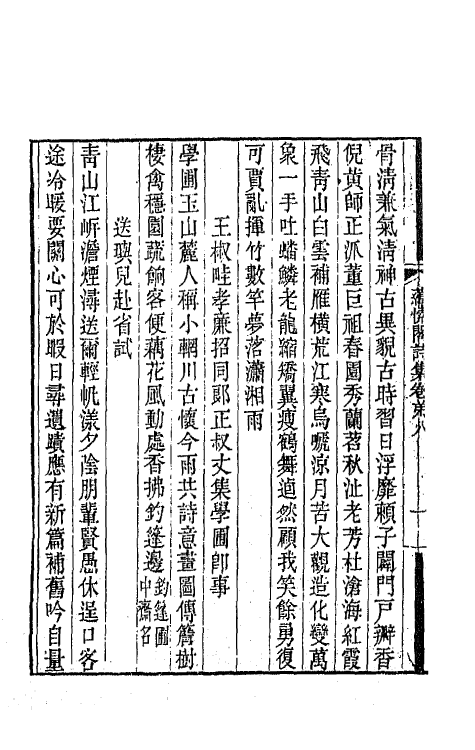 蘊愫閣詩集卷第八
骨淸兼氣淸神古異貌古時習日浮靡賴子闢門戶瓣香
倪黃師正派董巨祖春園秀蘭茗秋沚老芳杜滄海紅霞
飛靑山白雲補雁橫荒江寒烏嗁涼月苦大觀造化變萬
象一手吐蟠鱗老龍縮矯翼瘦鶴舞逌然顧我笑餘勇復
可賈亂揮竹數竿夢落瀟湘雨
王椒畦孝廉招同郞正叔丈集學圃卽事
學圃玉山麓人稱小輞川古懷今雨共詩意畫圖傳簷樹
棲禽穩園蔬餉客便藕花風動處香拂釣篷邊釣篷圃中齋名
送璵兒赴省試
靑山江岍澹煙潯送爾輕帆漾夕陰朋輩賢愚休逞口客
途冷暖要關心可於暇日尋遺蹟應有新篇補舊吟自量